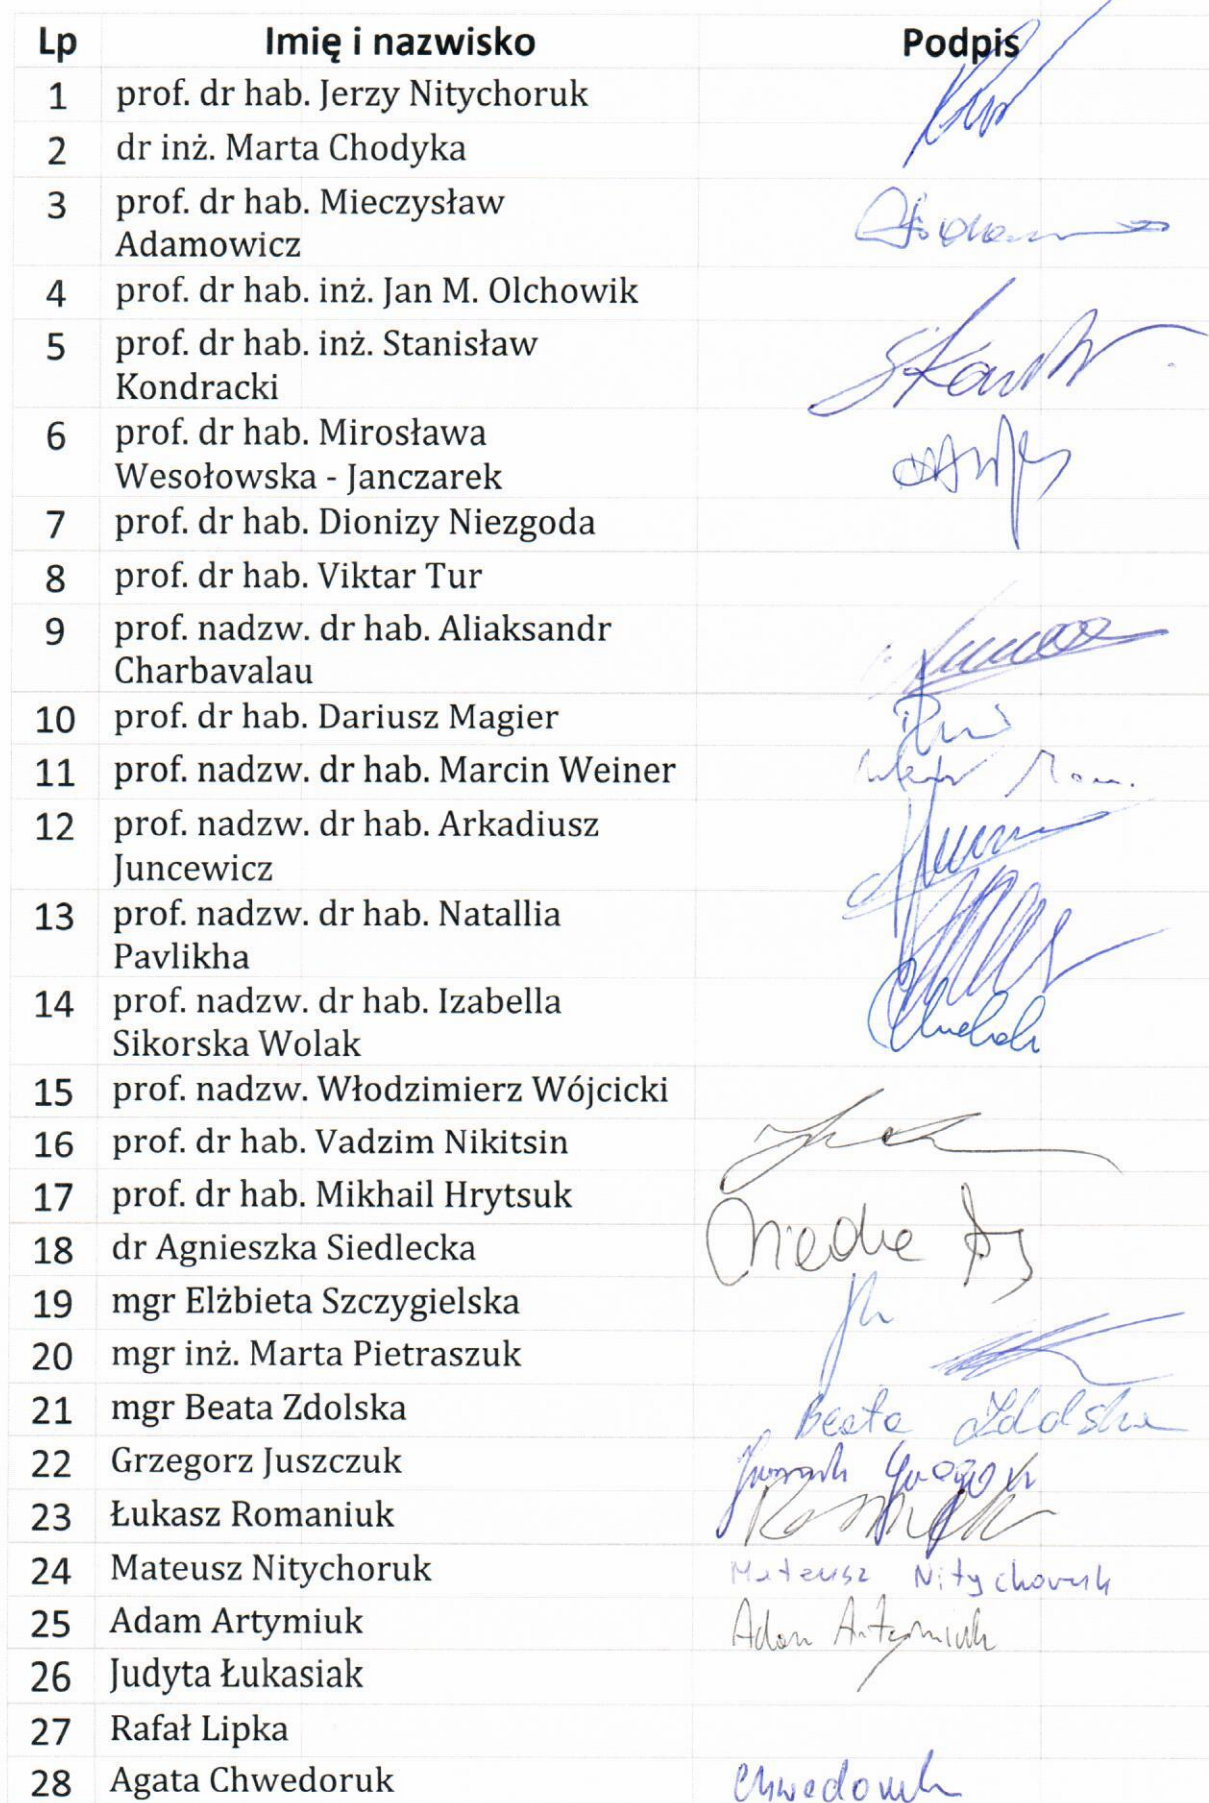 Lp Imię i nazwisko Podpis
1 prof. dr hab. Jerzy Nitychoruk
2 dr inż. Marta Chodyka
3 prof. dr hab. Mieczysław
Adamowicz
4 prof. dr hab. inż. Jan M. Olchowik
5 prof. dr hab. inż. Stanisław
Kondracki
6 prof. dr hab. Mirosława
Wesołowska - Janczarek
7 prof. dr hab. Dionizy Niezgoda
8 prof. dr hab. Viktar Tur
9 prof. nadzw. dr hab. Aliaksandr
Charbavalau
10 prof. dr hab. Dariusz Magier
11 prof. nadzw. dr hab. Marcin Weiner
12 prof. nadzw. dr hab. Arkadiusz
Juncewicz
13 prof. nadzw. dr hab. Natallia
Pavlikha
14 prof. nadzw. dr hab. Izabella
Sikorska Wolak
15 prof. nadzw. Włodzimierz Wójcicki
16 prof. dr hab. Vadzim Nikitsin
17 prof. dr hab. Mikhail Hrytsuk
18 dr Agnieszka Siedlecka
19 mgr Elżbieta Szczygielska
20 mgr inż. Marta Pietraszuk
21 mgr Beata Zdolska Beata Zdolska
22 Grzegorz Juszczuk
23 Łukasz Romaniuk
24 Mateusz Nitychoruk Mateusz Nitychoruk
25 Adam Artymiuk Adam Artymiuk
26 Judyta Łukasiak
27 Rafał Lipka
28 Agata Chwedoruk Chwedoruk